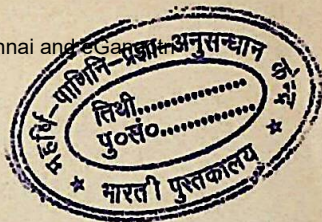 nnai and eGangotri
महर्षि-पाणिनि-प्रज्ञा-अनुसन्धान केन्द्र
तिथी..............
पु०सं०..............
* भारती पुस्तकालय *